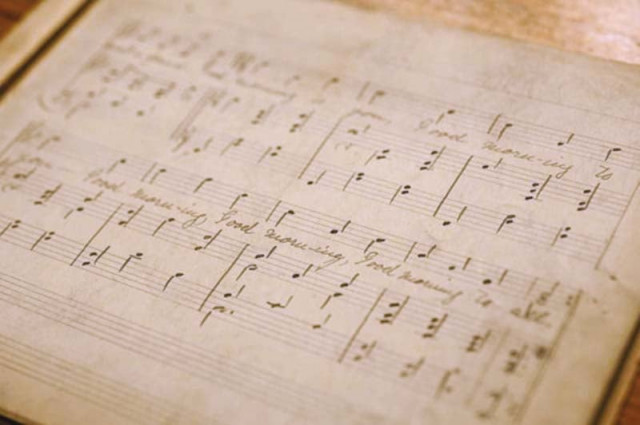 you. Good morn-ing to
you. Good morn-ing, Good morn-ing, Good morning to all.